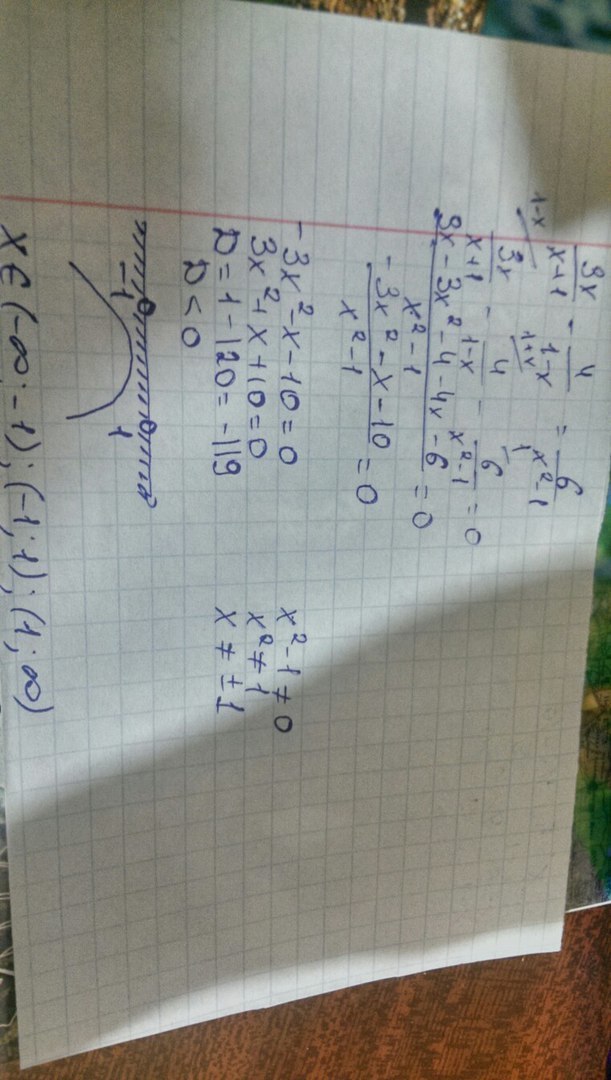 3x/(x+1) - 4/(1-x) = 6/(x²-1)
3x/(x+1) - 4/(1-x) - 6/(x²-1) = 0
(3x - 3x² - 4 - 4x - 6)/(x²-1) = 0
(-3x² - x - 10)/(x²-1) = 0
-3x² - x - 10 = 0
x² - 1 ≠ 0
3x² + x + 10 = 0
x² ≠ 1
D = 1 - 120 = -119
x ≠ ±1
D < 0
-1 1
x ∈ (-∞; -1); (-1; 1); (1; ∞)